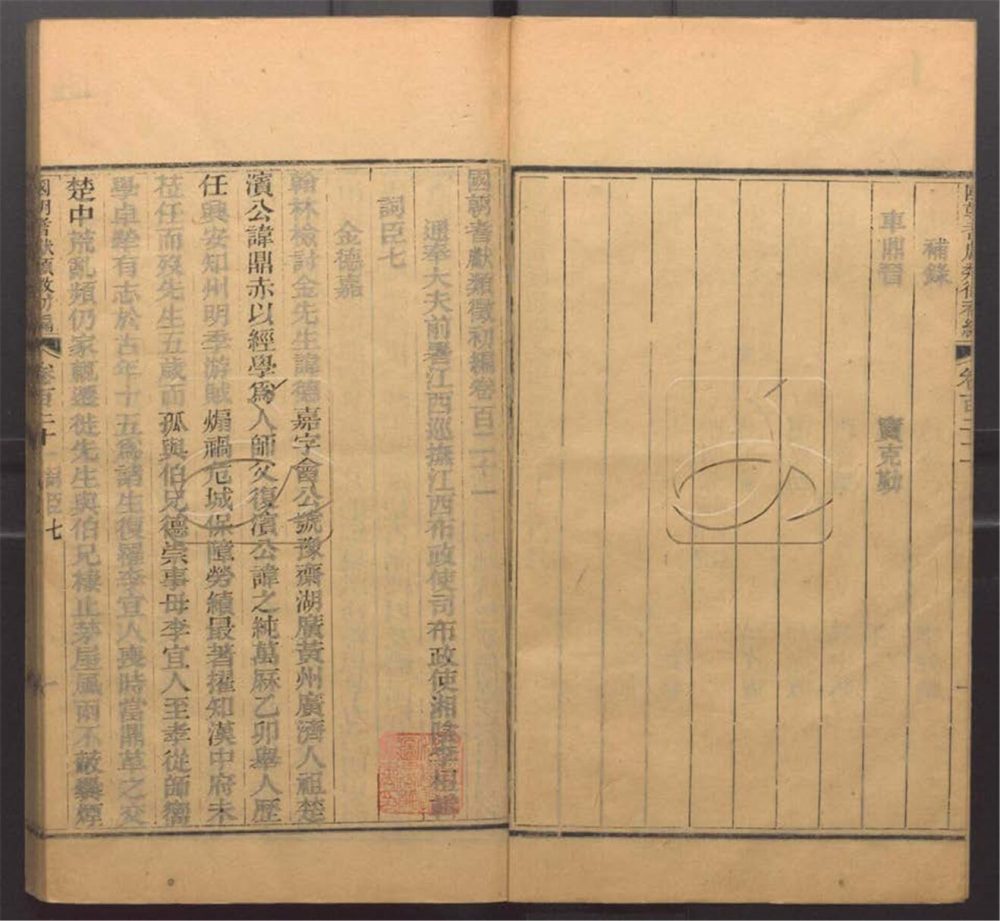 補錄
車鼎晉
竇克勤
國朝耆獻類徵初編卷百二十一
通奉大夫前署江西巡撫江西布政使司布政使湘陰李桓輯
詞臣七
金德嘉
翰林檢討金先生諱德嘉字會公號豫齋湖廣黃州廣濟人祖楚
濱公諱鼎赤以經學爲人師父復濱公諱之純萬厤乙卯舉人歷
任興安知州明季游賊煽禍危城保障勞績最著擢知漢中府未
莅任而歿先生五歲而孤與伯兄德崇事母李宜人至孝從師嚮
學卓犖有志於古年十五爲諸生復罹李宜人喪時當鼎革之交
楚中荒亂頻仍家輒遷徙先生與伯兄棲止茅屋風雨不蔽爨煙
國朝耆獻類徵初編 卷百二十一 詞臣七 一